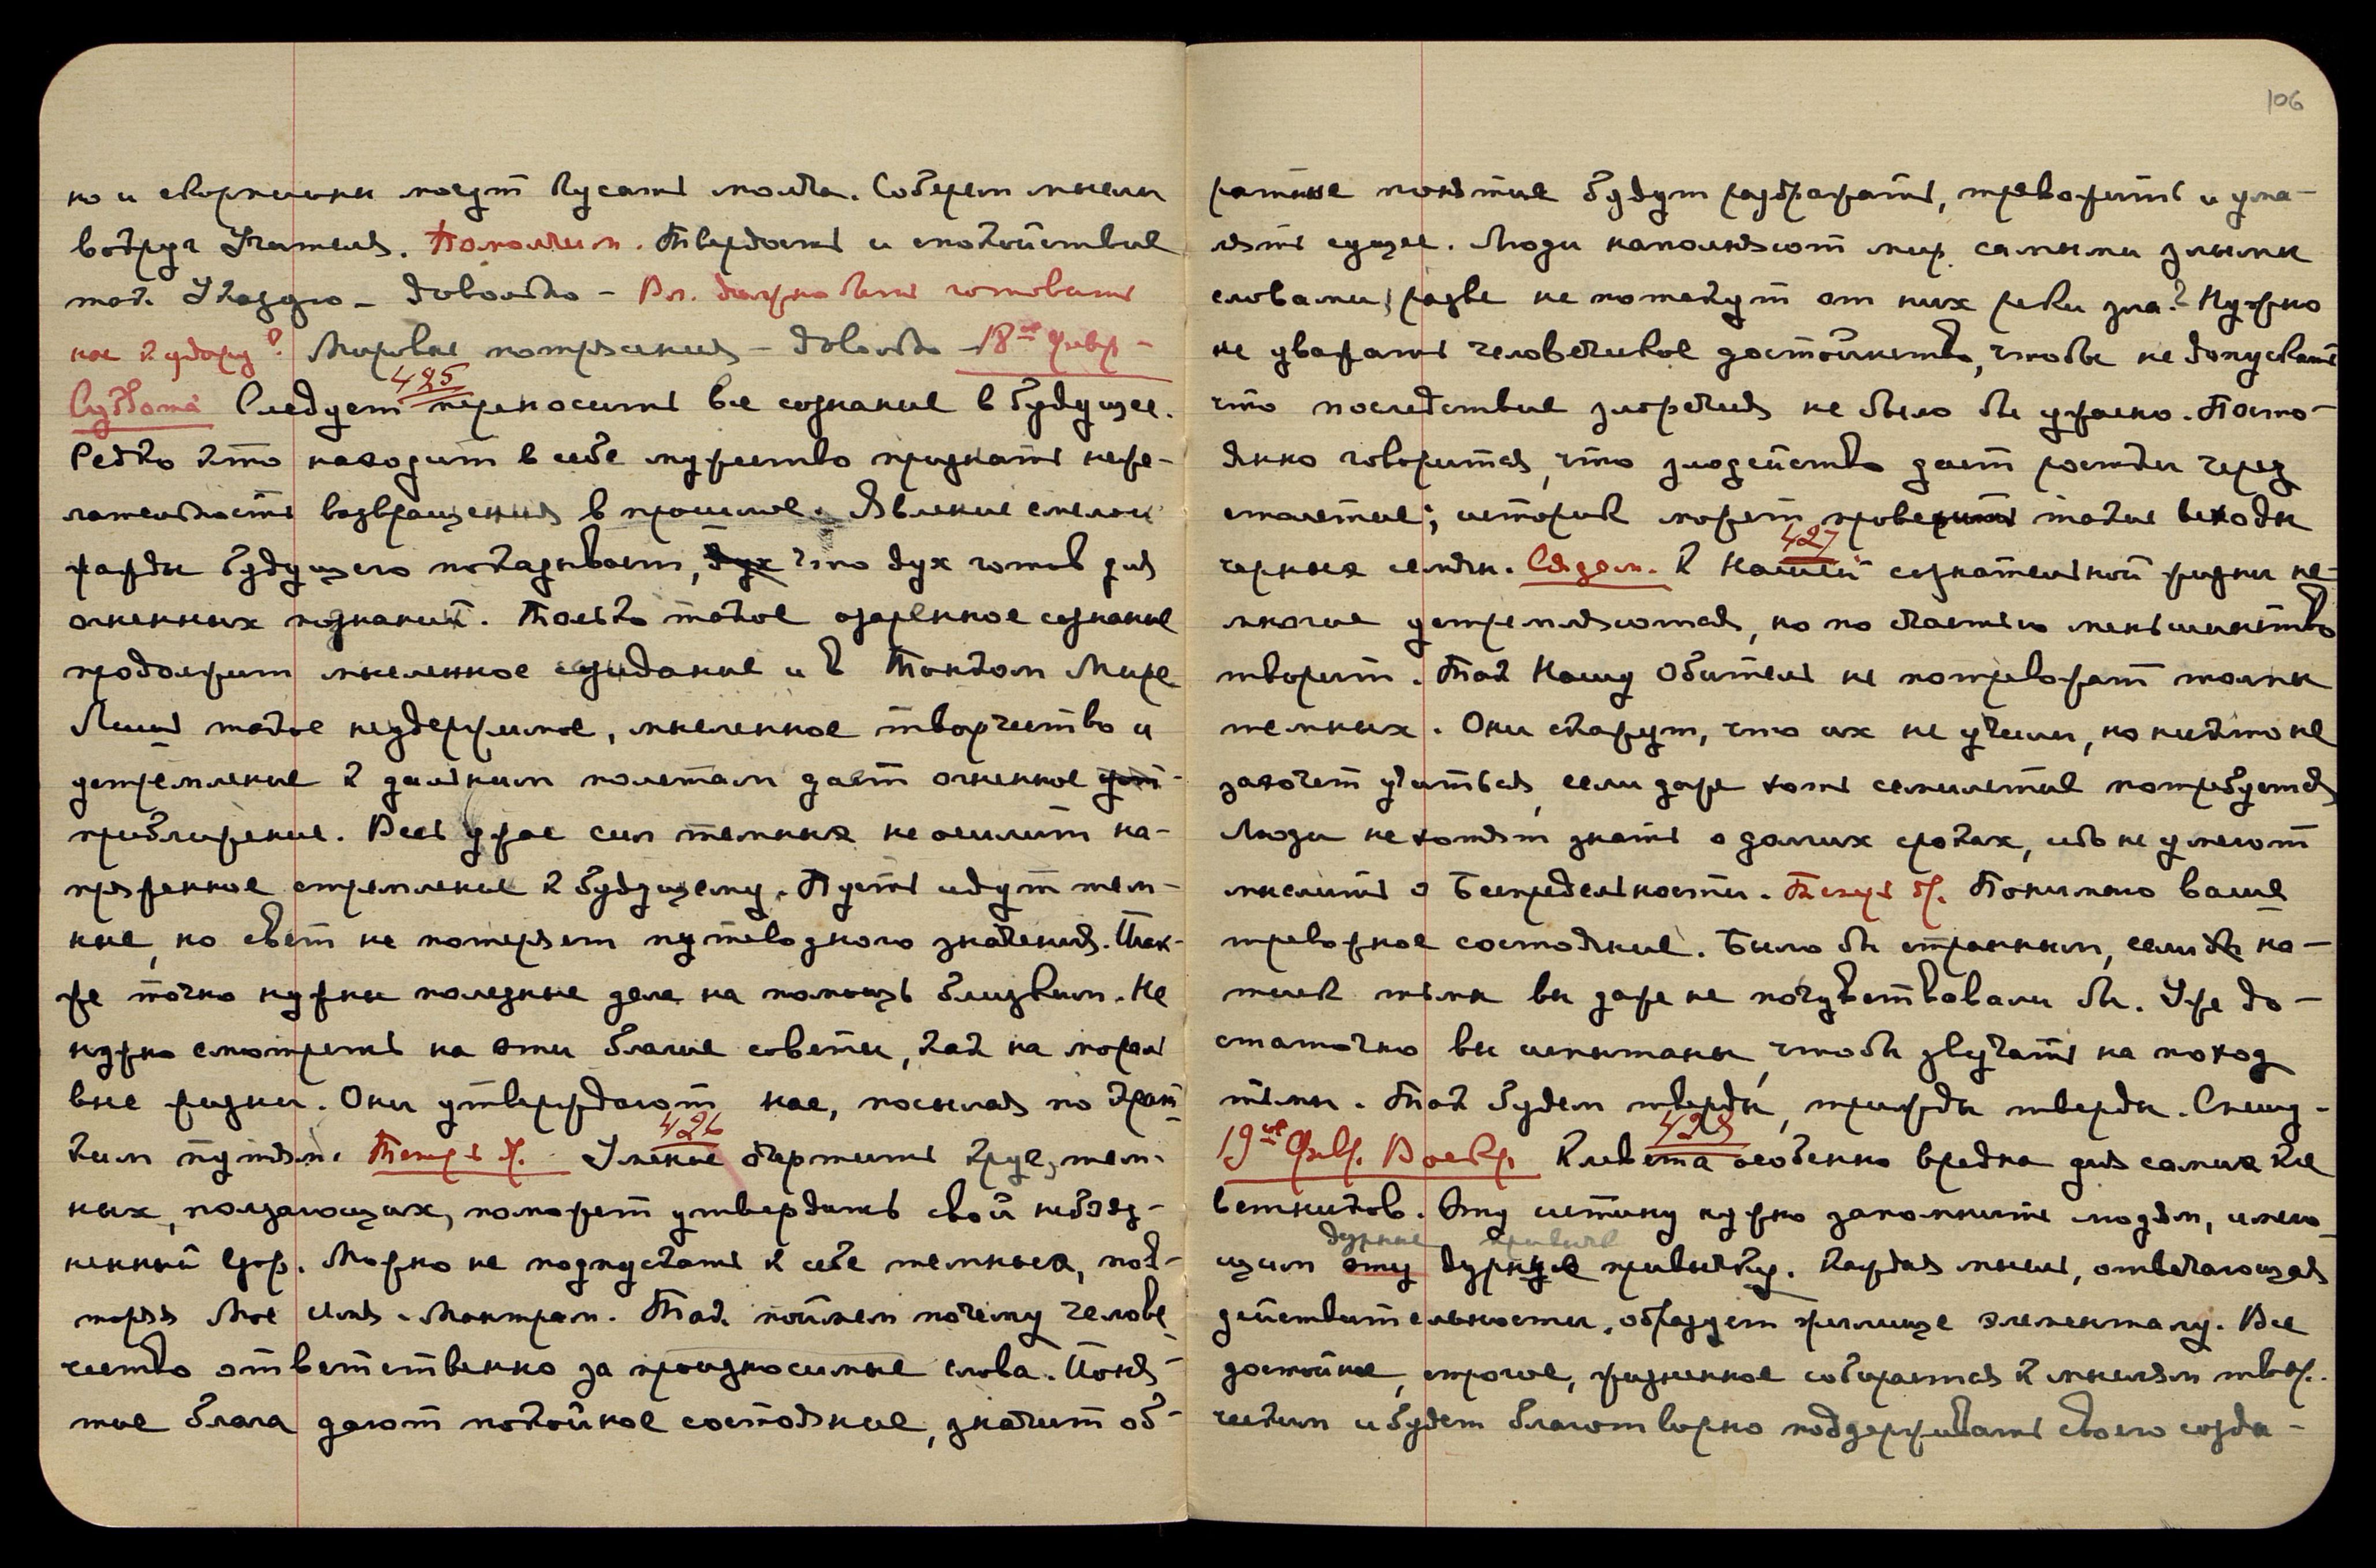 но и скорпионы могут кусать молча. Соберем мысли
вокруг Учителя. Помолчим. Твердость и спокойствие
так Указую – довольно – Вл. должно быть готовит
нас к удару? Мировые потрясения – довольно – 18-ое Февр –
Суббота 425 Следует переносить все сознание в будущее.
Редко кто находит в себе мужество признать неже-
лательность возвращения в прошлое. Явление смелой
жажды будущего показывает, дух что дух готов для
огненных познаний. Только такое озаренное сознание
продолжит мысленное созидание и в Тонком Мире
Лишь такое неудержимое, мысленное творчество и
устремление к дальним полетам дает огненное
приближение. Весь ужас сил темных не осилит на-
пряженное стремление к будущему. Пусть идут тем-
ные, но свет не потеряет путеводного значения. Так-
же точно нужны полезные дела на помощь близким. Не
нужно смотреть на эти благие советы, как на мораль
вне жизни. Они утверждают нас, посылая по крат
ким путям. Теперь 426 Умение очертить круг, тем-
ных, ползающих, поможет утвердить свой небояз-
ненный взор. Можно не подпускать к себе темных, пов-
торяя Мое Имя – Мантрам. Так поймем почему челове
чество ответственно за произносимые слова. Поня-
тие блага дают покойное состояние, значит об-
106
ратное понятие будут раздражать, тревожить и ума-
лять сущее. Люди наполняют мир самыми злыми
словами, разве не потекут от них реки зла? Нужно
не уважать человеческое достоинство, чтобы не допускать
что последствие злоречия не было бы ужасно. Посто-
янно говорится, что злодейство дает ростки через
столетие; историк может проверить такие всходы
черных семян. Сядем. 427 К Нашей сознательной жизни не-
многие устремляются, но по счастью меньшинство
творит. Так Нашу Обитель не потревожат толпы
темных. Они скажут, что их не учили, но никто не
захочет учиться, если даже хоть семилетие потребуется
Люди не хотят знать о долгих сроках, ибо не умеют
мыслить о Беспредельности. Теперь Понимаю ваше
тревожное состояние. Было бы странным, если бы на-
тиск тьмы вы даже не почувствовали бы. Уже до-
статочно вы испытаны, чтобы звучать на поход
тьмы. Так будем тверды, трижды тверды. Спешу.
19-ое Февр. Воскр. 428 Клевета особенно вредна для самих кле
ветников. Эту истину нужно запомнить людям, имею
дурные привыч
щим эту дурную привычку. Каждая мысль, отвечающая
действительности, образует жилище элементалу. Все
достойное, строгое, жизненное собирается к мыслям твор.
ческим и будет благотворно поддерживать своего созда-